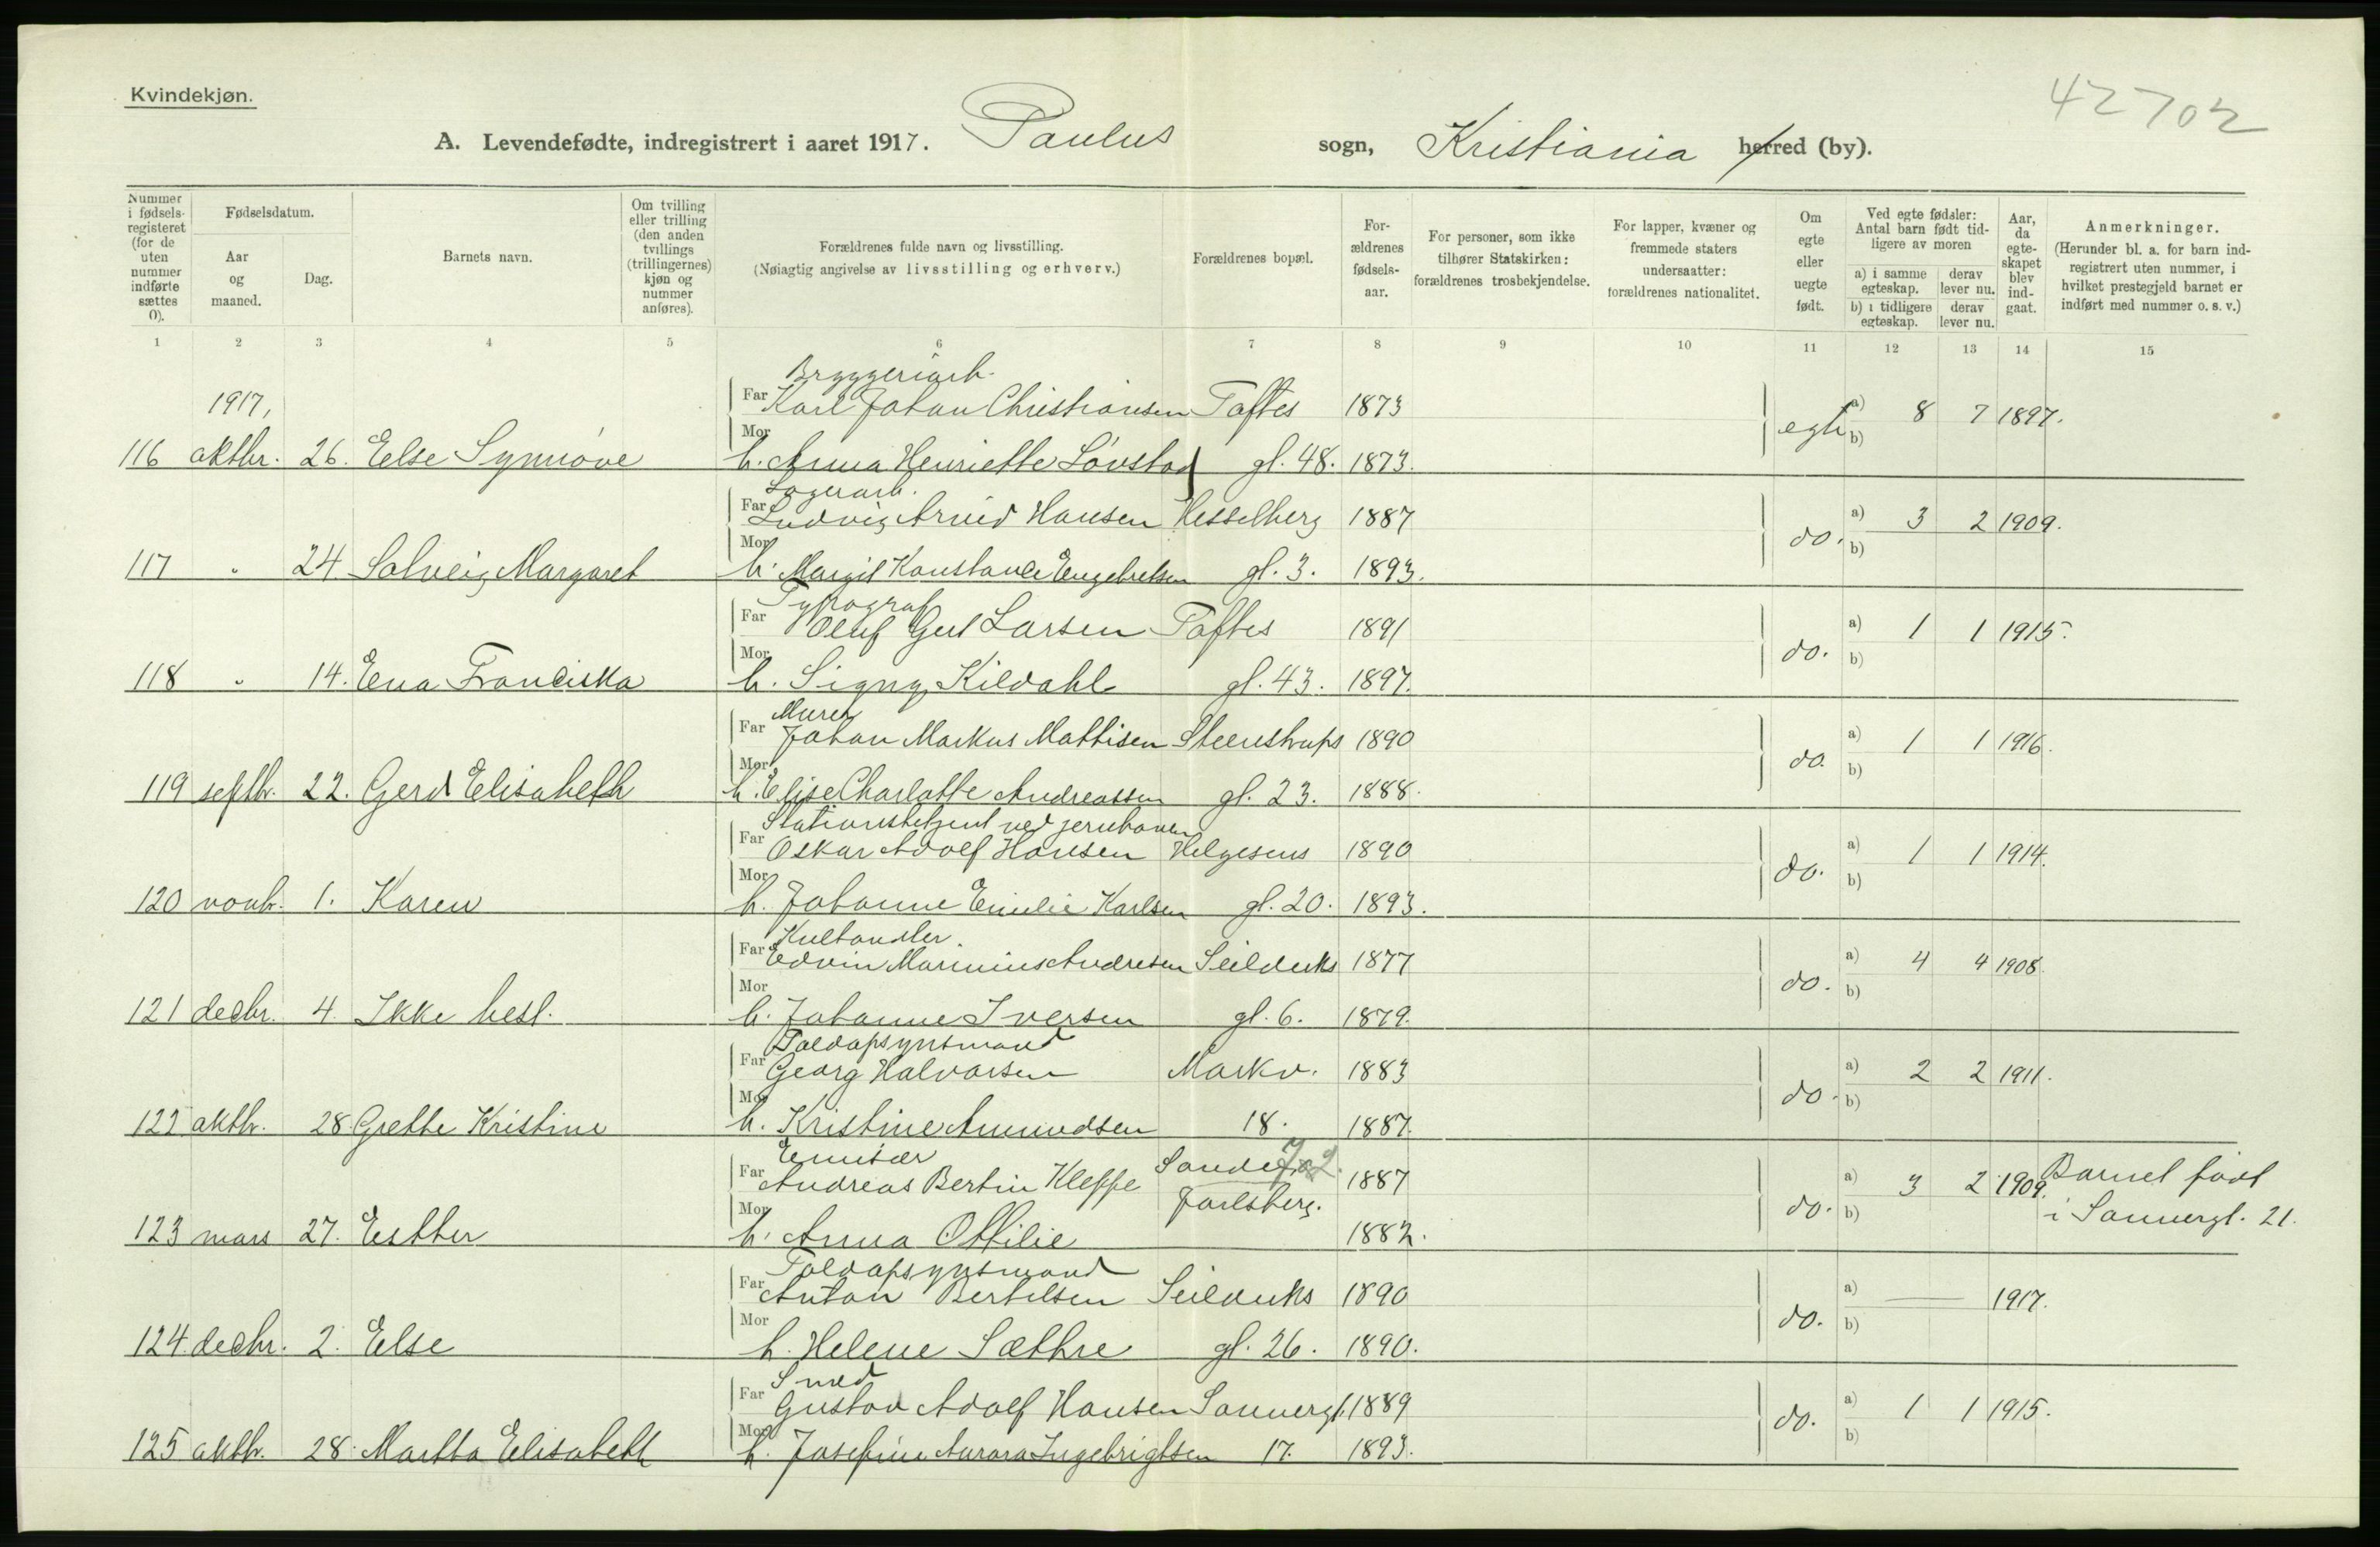 Kvindekjøn.
42702
A. Levendefødte, indregistrert i aaret 1917. Paulus sogn, Kristiania herred (by).
Nummer i fødsels-registeret (for de uten nummer indførte sættes 0).
Fødselsdatum.
Aar og maaned.
Dag.
Barnets navn.
Om tvilling eller trilling (den anden tvillings (trillingernes) kjøn og nummer anføres).
Forældrenes fulde navn og livsstilling.
(Nøiagtig angivelse av livsstilling og erhverv.)
Forældrenes bopæl.
For-ældrenes fødsels-aar.
For personer, som ikke tilhører Statskirken: forældrenes trosbekjendelse.
For lapper, kvæner og fremmede staters undersaatter: forældrenes nationalitet.
Om egte eller uegte født.
Ved egte fødsler: Antal barn født tid-ligere av moren
a) i samme egteskap.
derav lever nu.
b) i tidligere egteskap.
derav lever nu.
Aar, da egte-skapet blev ind-gaat.
Anmerkninger.
(Herunder bl. a. for barn ind-registrert uten nummer, i hvilket prestegjeld barnet er indført med nummer o. s. v.)
1 2 3 4 5 6 7 8 9 10 11 12 13 14 15
Bryggeriarb.
1917, Far Karl Johan Christiansen Toftes 1873 a) 8 7 1897.
116 oktbr. 26. Else Synnöve Mor h. Anna Henriette Lövstad gl. 48. 1873. egte b)
Lagerarb.
Far Ludvig Arvid Hansen Hesselberg 1887 a) 3 2 1909.
117 " 24 Solveig Margaret Mor h. Margit Konstance Engebretsen gl. 3. 1893. do. b)
Typograf
Far Oluf Gul Larsen Toftes 1891 a) 1 1 1915.
118 " 14. Ena Franciska Mor h. Signy Kildahl gl. 43. 1897. do. b)
Murer
Far Johan Markus Mathisen Steenstrups 1890 a) 1 1 1916.
119 septbr. 22. Gerd Elisabeth Mor h. Elise Charlotte Andreassen gl. 23. 1888. do. b)
Stationsbetjent ved jernbanen
Far Oskar Adolf Hansen Helgesens 1890 a) 1 1 1914.
120 novbr. 1. Karen Mor h. Johanne Emilie Karlsen gl. 20. 1893. do. b)
Kulhandler.
Far Edvin Marinius Andresen Seilduks 1877 a) 4 4 1908.
121 decbr. 4. Ikke best. Mor h. Johanne Iversen gl. 6. 1879. do. b)
Toldopsynsmand
Far Georg Halvorsen Markv. 1883 a) 2 2 1911.
122 oktbr. 28. Grethe Kristine Mor h. Kristine Amundsen 18. 1887. do. b)
Emisær
Far Andreas Bertin Kleppe Sande i Jarlsberg. 702. 1887 a) 3 2 1909. Barnet født
123 mars 27. Esther Mor h. Anna Ottilie 1882. do. b) i Sannergt. 21.
Toldopsynsmand
Far Anton Bertelsen Seilduks 1890 a) — 1917.
124. decbr. 2. Else Mor h. Helene Sæthre gl. 26. 1890. do. b)
Smed
Far Gustav Adolf Hansen Sannergt. 1889 a) 1 1 1915.
125 oktbr. 28. Martha Elisabeth Mor h. Josefine Aurora Ingebrigtsen 17. 1893. do. b)